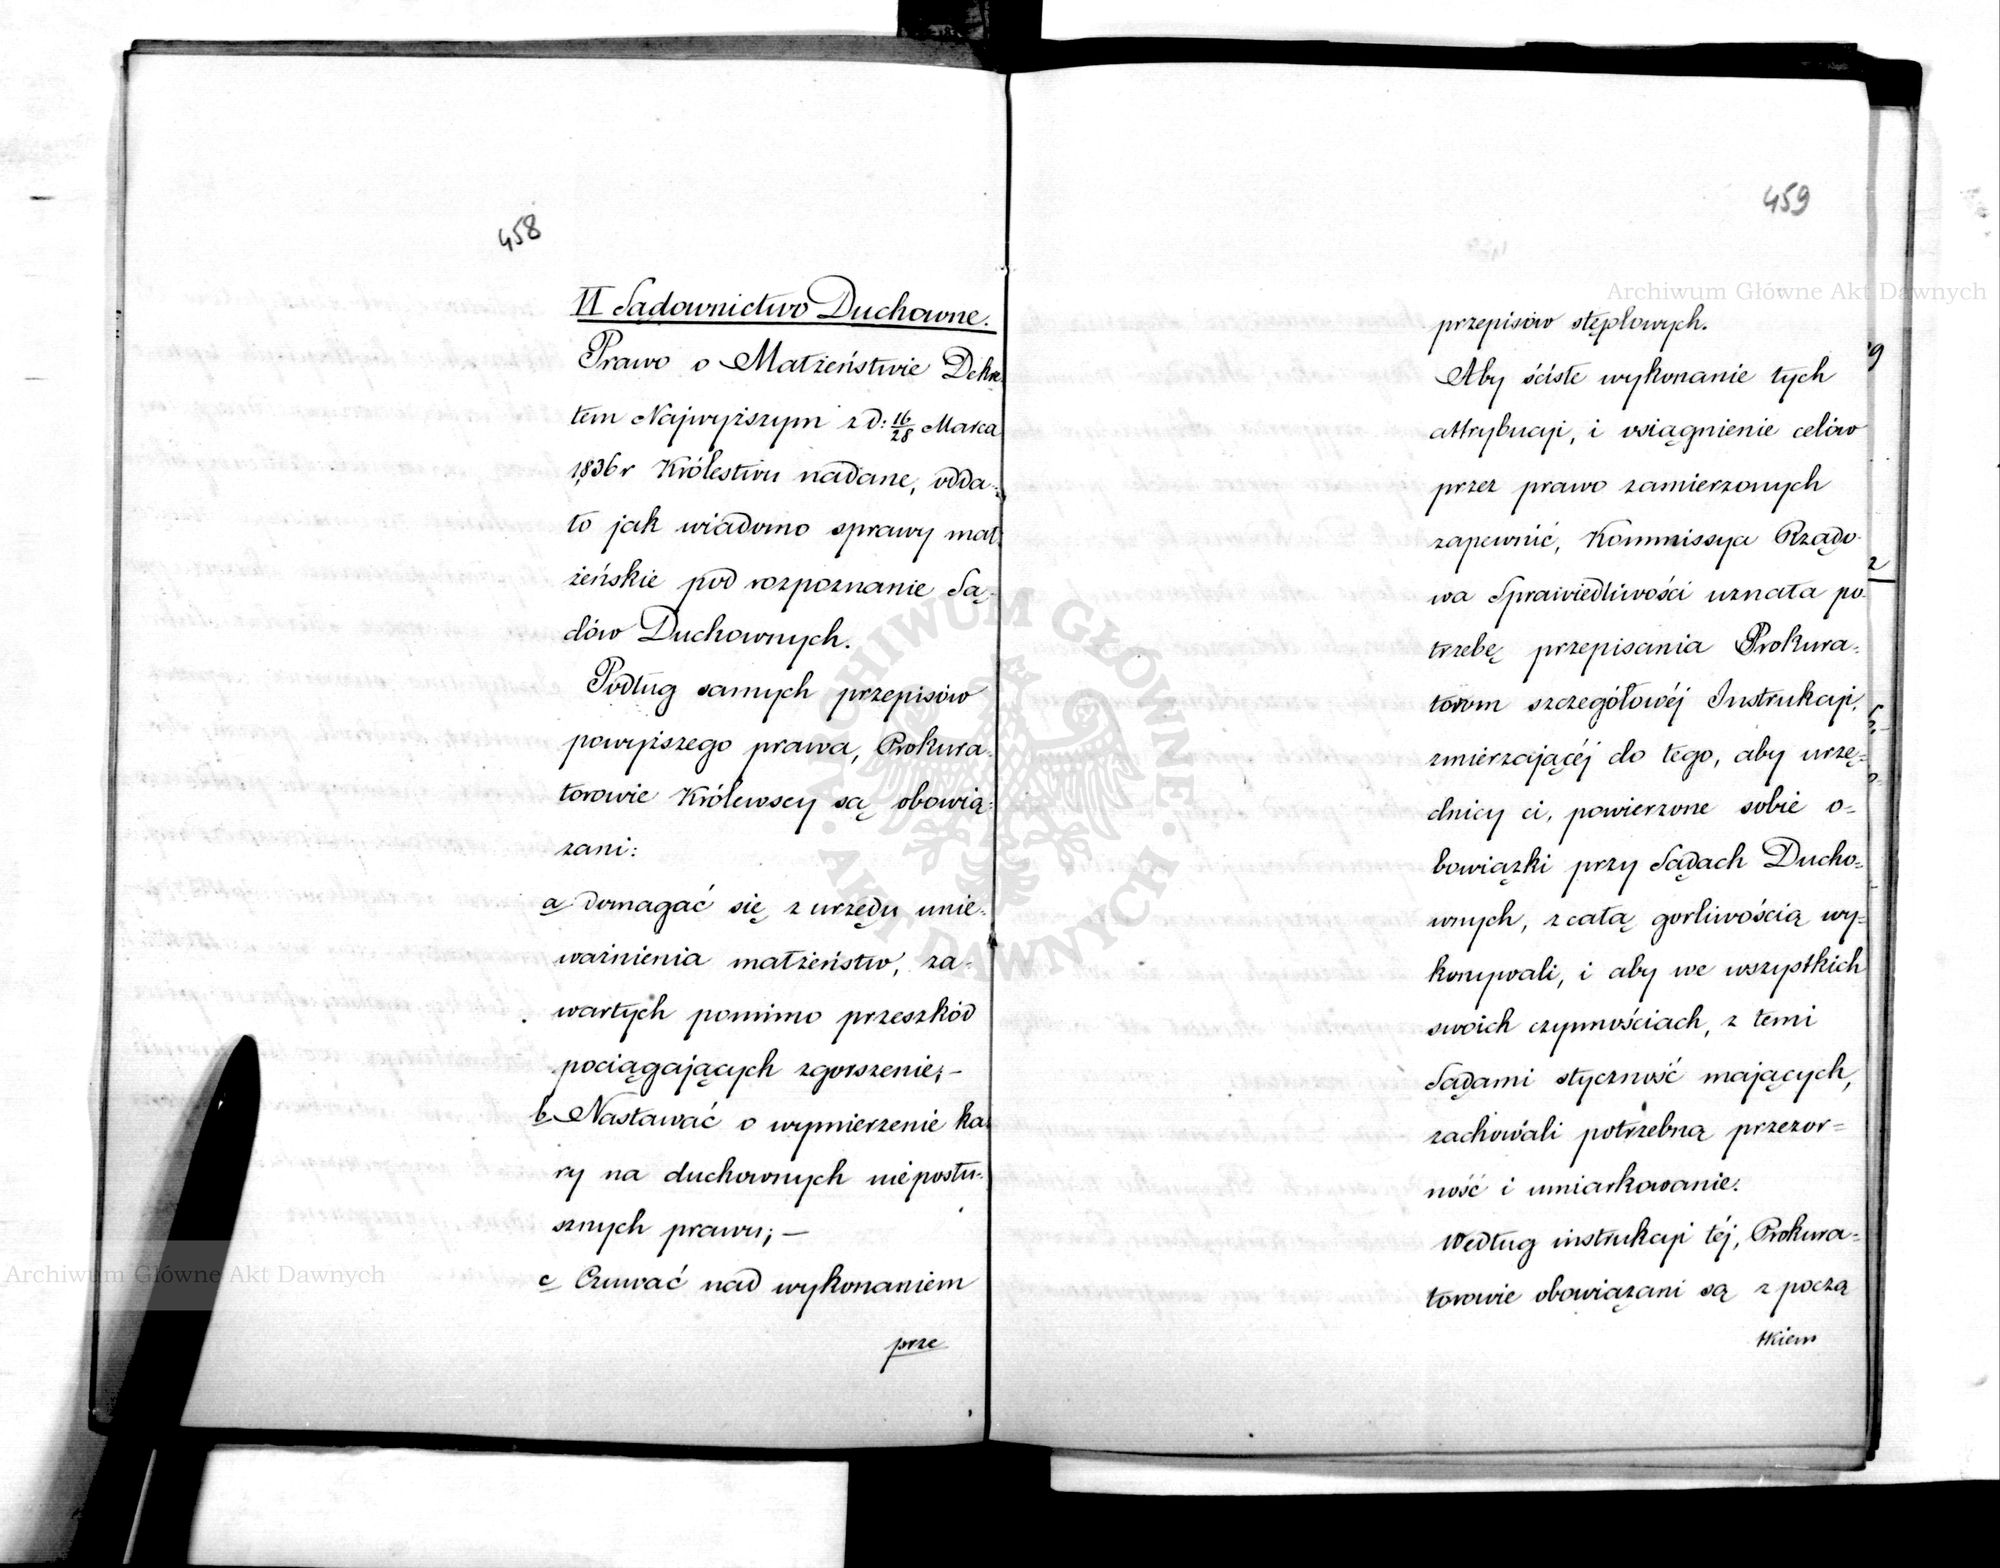 458
VI Sądownictwo Duchowne.
Prawo o Małżeństwie Dekre
tem Najwyższym z d: 16/28 Marca
1836 r Królestwu nadane, odda-
ło jak wiadomo sprawy mał
żeńskie pod rozpoznanie Są-
dów Duchownych.
Podług samych przepisów
powyższego prawa, Prokura-
torowie Królewscy są obowią-
zani:
a domagać się z urzędu unie-
ważnienia małżeństw, za-
wartych pomimo przeszkód
pociągających zgorszenie; -
b Nastawać o wymierzenie ka-
ry na duchownych nieposłu-
sznych prawu; -
c Czuwać nad wykonaniem
prze
459
przepisów stęplowych.
Aby ściśle wykonanie tych
attrybucyi, i osiągnienie celów
przez prawo zamierzonych
zapewnić, Kommissya Rządo-
wa Sprawiedliwości uznała po-
trzebę przepisania Prokura-
torom szczegółowéj Instrukcyi,
zmierzającéj do tego, aby urzę-
dnicy ci, powierzone sobie o=
bowiązki przy Sądach Ducho=
wnych, z całą gorliwością wy=
konywali, i aby we wszystkich
swoich czynnościach, z temi
Sądami styczność mających,
zachowali potrzebną przezor=
ność i umiarkowanie.
Według instrukcyi téj, Prokura=
torowie obowiązani są z począ
tkiem
Archiwum Główne Akt Dawnych
Archiwum Główne Akt Dawnych
ARCHIWUM GŁÓWNE · AKT DAWNYCH ·